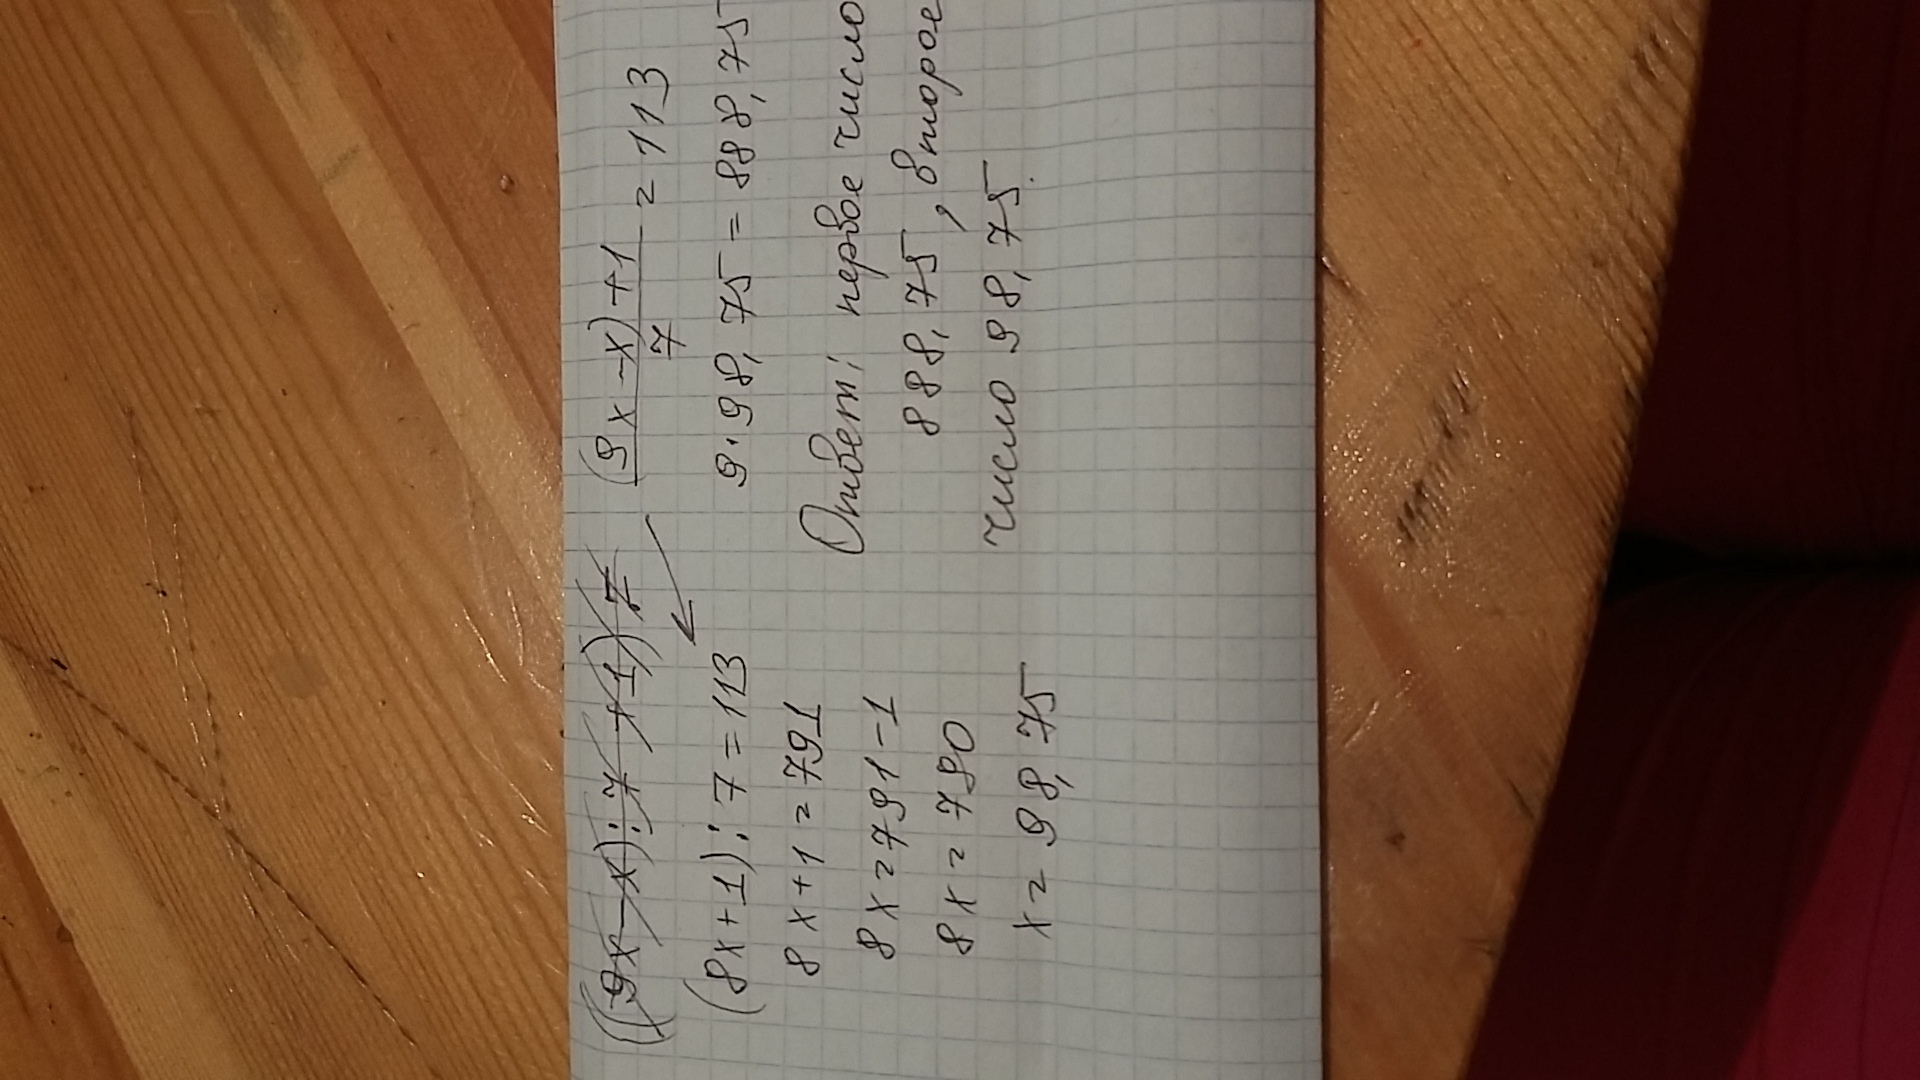 ((9x-x):7+1):7
(8x+1):7=113
8x+1=791
8x=791-1
8x=790
x=98,75
(9x-x)+1
7
=113
9·98,75=888,75
Ответ: первое число
888,75, второе
число 98,75.